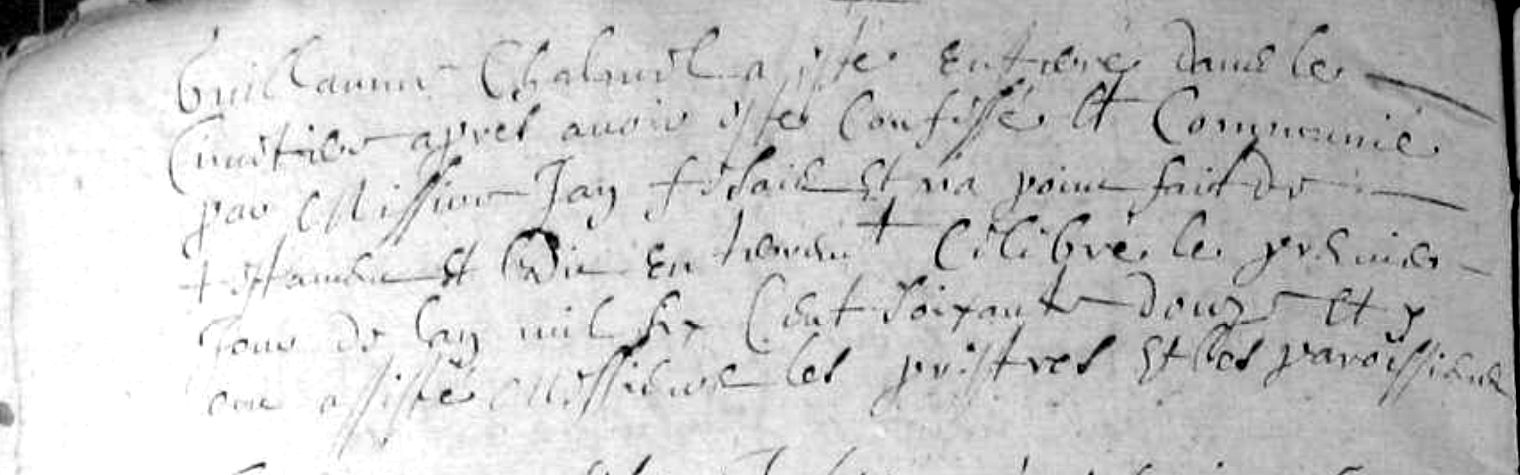 Guillaume Chalmel a este enterré dans le
Cimitiere apres avoir este Confessé et Communié
par Missire Jan et n'a point fait de
testament et ledit enterrement Célébré le premier
Jour de lan mil six Cent soixante douze et y
ont assisté Messieurs les prestres et les paroissiens